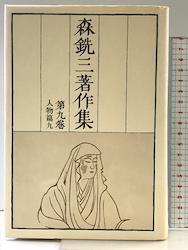 森銑三著作集
第九巻
人物篇九